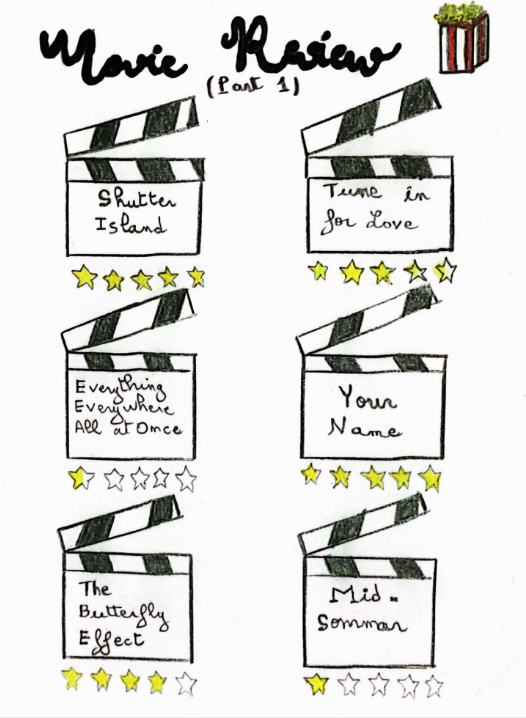 Movie Review
(Part 1)
Shutter
Island
Tune in
for Love
Everything
Everywhere
All at Once
Your
Name
The
Butterfly
Effect
Mid-
Sommar